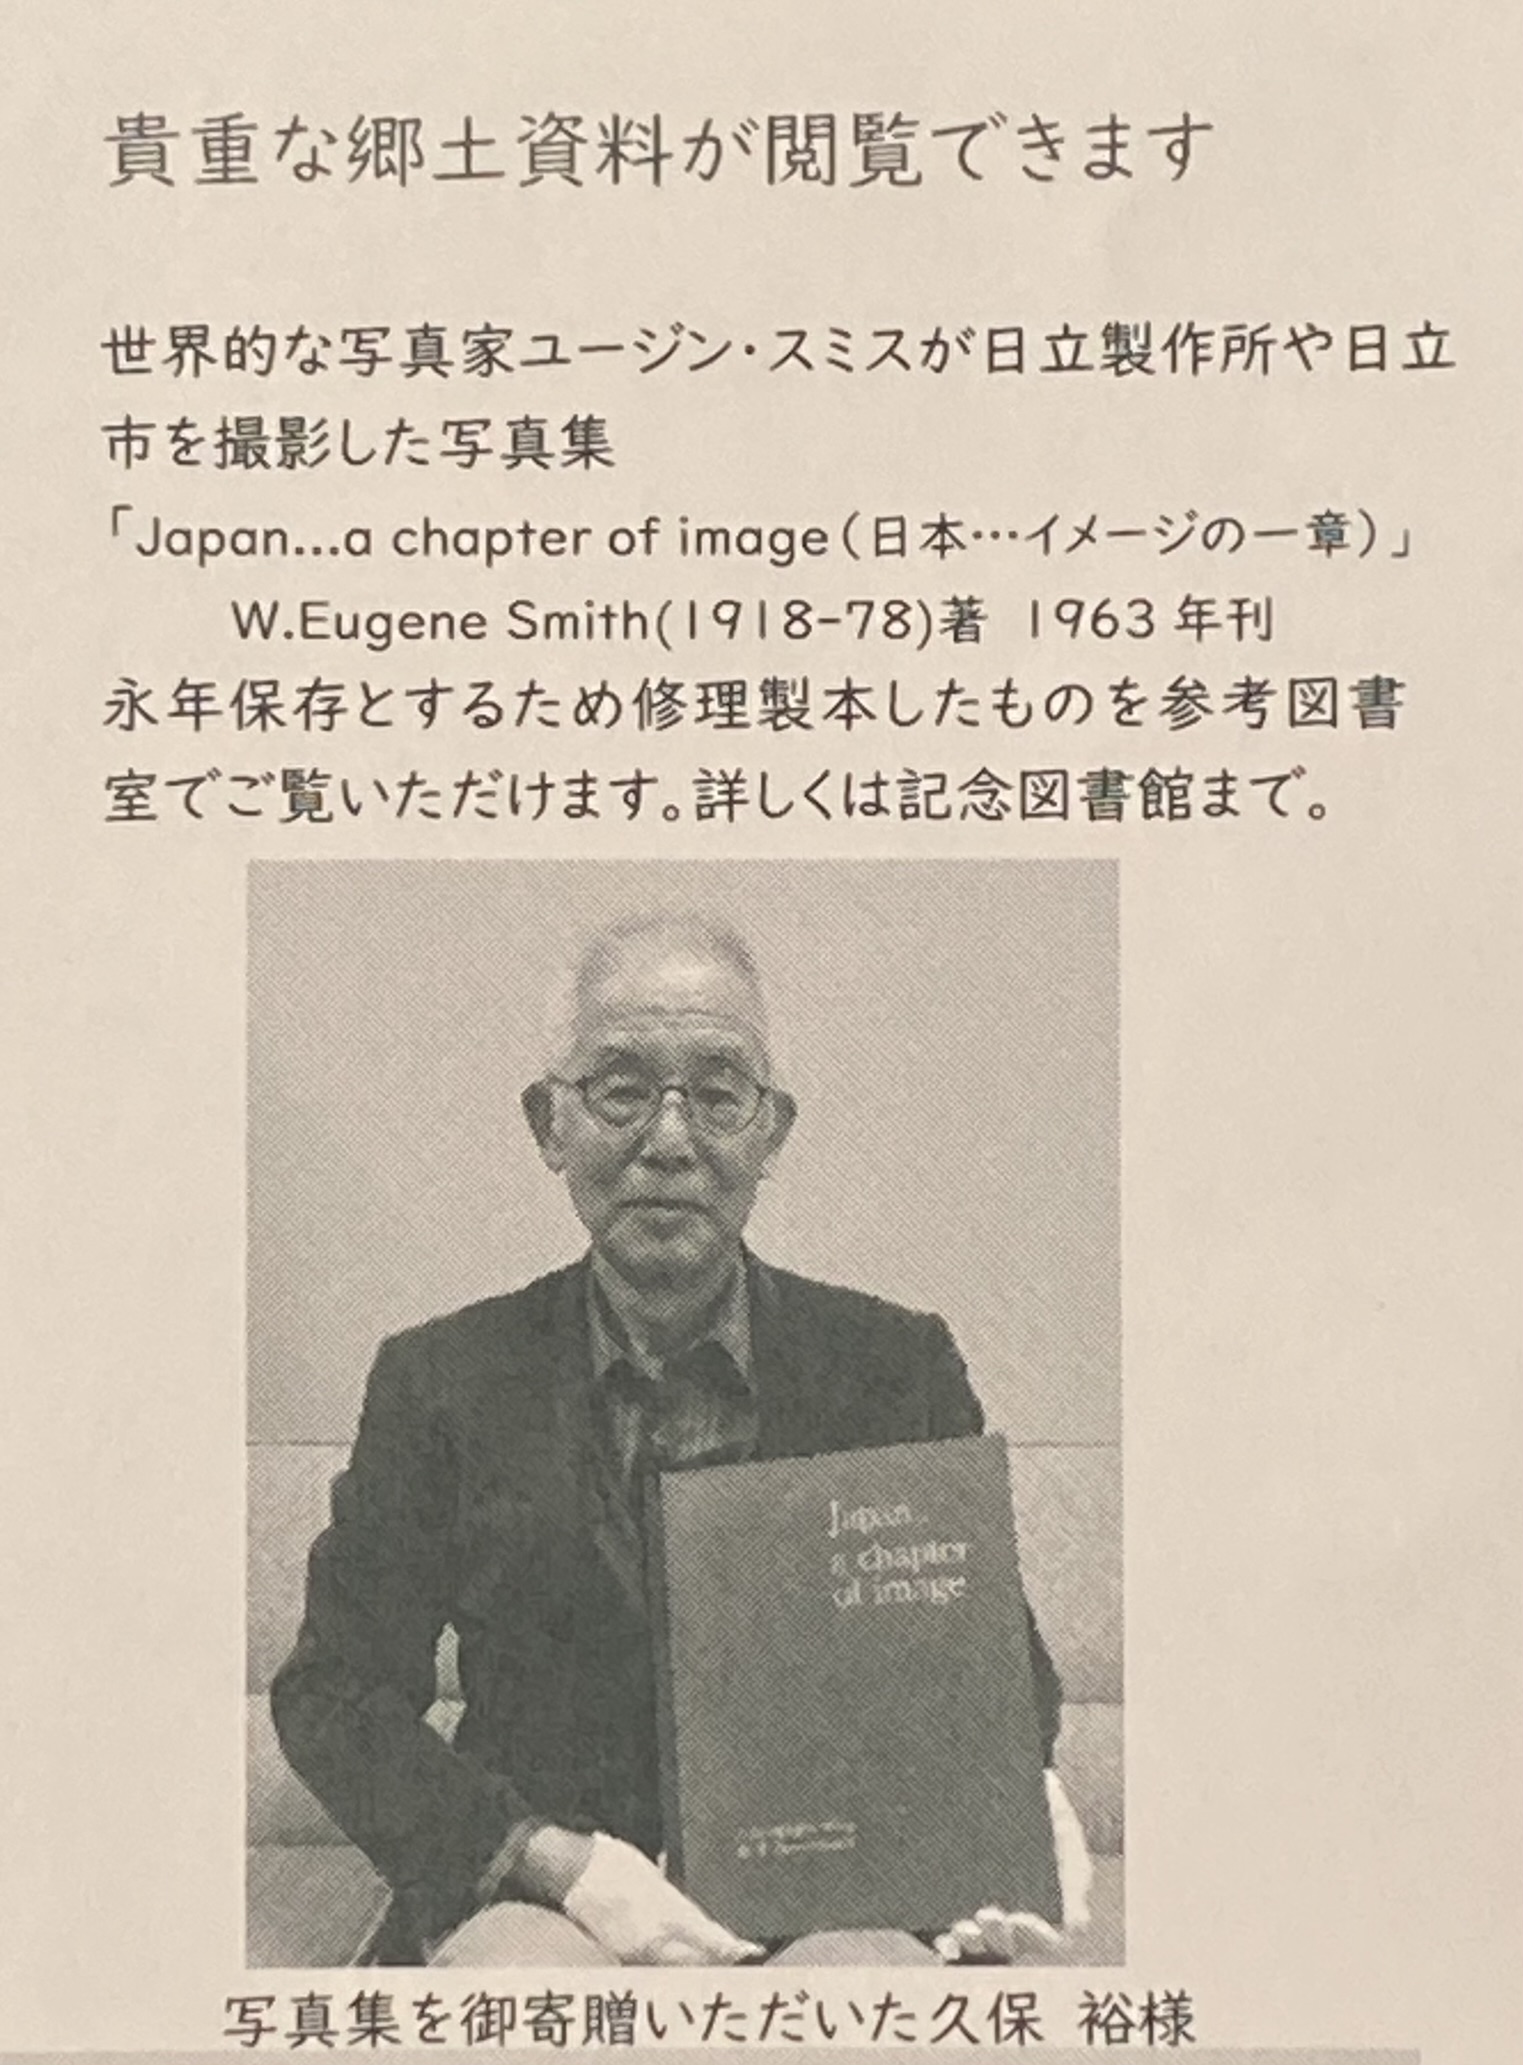 貴重な郷土資料が閲覧できます
世界的な写真家ユージン・スミスが日立製作所や日立
市を撮影した写真集
「Japan...a chapter of image(日本…イメージの一章)」
W.Eugene Smith(1918-78)著 1963年刊
永年保存とするため修理製本したものを参考図書
室でご覧いただけます。詳しくは記念図書館まで。
Japan...
a chapter
of image
写真集を御寄贈いただいた久保 裕様